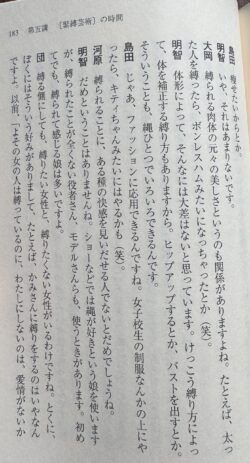 183　第五講　〔緊縛芸術〕の時間
島田　痩せたいからとか。
明智　いや、それはあまりないです。
大岡　縛られる肉体の元々の美しさというのも関係がありますよね。たとえば、太っ
た人を縛ったら、ボンレスハムみたいになっちゃったとか（笑）。
明智　体形によって、そんなには大差はないと思っています。けっこう縛り方によっ
て、体を補正する縛り方もありますから。ヒップアップするとか、バストを出すとか。
そういうことも、縄ひとつでいろいろできるんです。
島田　じゃあ、ファッションに応用できるんですね。女子校生の制服なんかの上にや
ったら、キティちゃんみたいにはやるかも（笑）。
河原　縛られることに、ある種の快感を見いだせる人でないとだめでしょうね。
明智　だめということはありませんね。ショーなどでは縄が好きという娘を使います
が、縛られたことが全くない役者さん、モデルさんたちも、使うときがあります。初め
てでも、縛られて感じる娘は多いですよ。
団　縛る側にしても、縛りたい女性と、縛りたくない女性がいるわけですね。とくに、
ぼくにはそういう好みがありまして、たとえば、かみさんに縛りをするのはいやなん
です。以前、「よその女の人は縛っているのに、わたしにしないのは、愛情がないか